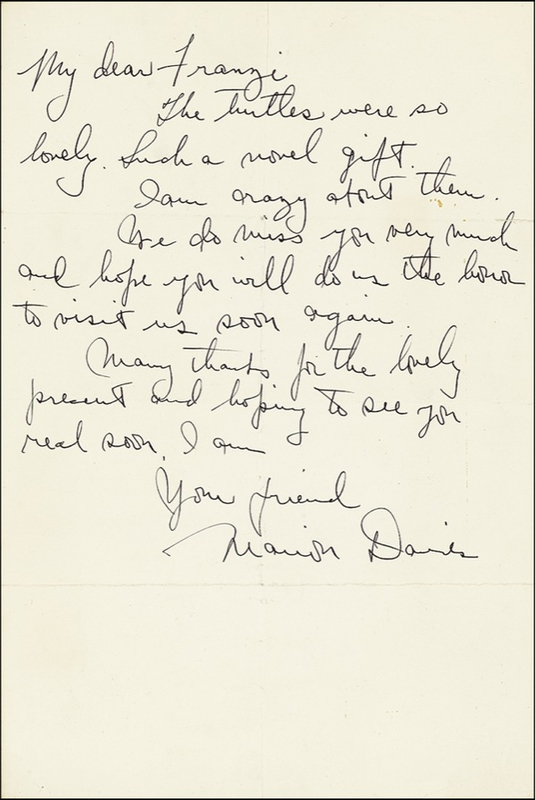 My dear Franzi
The turtles were so
lovely. Such a novel gift.
I am crazy about them.
We do miss you very much
and hope you will do us the honor
to visit us soon again.
Many thanks for the lovely
present and hoping to see you
real soon. I am
Your friend
Marion Davies